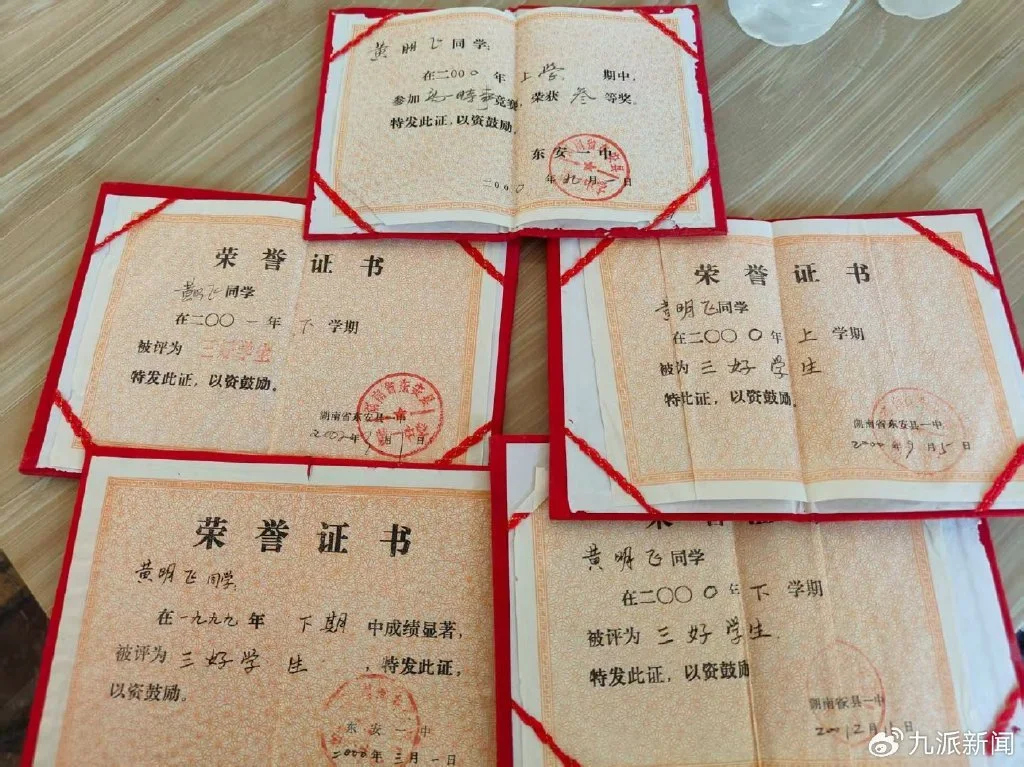 黄明飞同学:
在二000年上学期中,
参加高一时事竞赛,荣获叁等奖。
特发此证,以资鼓励。
东安一中
二000年九月一日
荣誉证书
黄明飞同学
在二〇〇一年下学期
被评为三好学生
特发此证,以资鼓励。
湖南省东安县一中
2002年9月1日
湖南省东安县
荣誉证书
黄明飞同学
在二〇〇〇年上学期
被为三好学生
特此证,以资鼓励。
湖南省东安县一中
2000年9月15日
荣誉证书
黄明飞同学
在一九九九年下期中成绩显著,
被评为三好学生,特发此证,
以资鼓励。
东安一中
2000年三月一日
黄明飞同学
在二〇〇〇年下学期
被评为三好学生
特发此证,以资鼓
湖南省安县一中
20012月1日
九派新闻